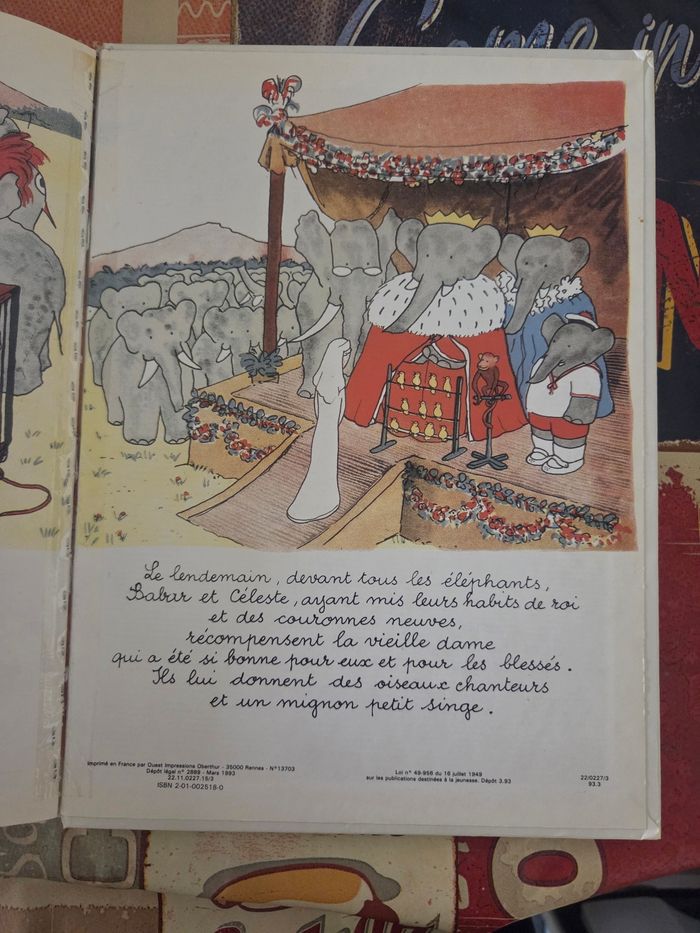 Come in
Le lendemain, devant tous les éléphants,
Babar et Céleste, ayant mis leurs habits de roi
et des couronnes neuves,
récompensent la vieille dame
qui a été si bonne pour eux et pour les blessés.
Ils lui donnent des oiseaux chanteurs
et un mignon petit singe.
Imprimé en France par Ouest Impressions Oberthur - 35000 Rennes - N°13703
Dépôt légal n° 2889 - Mars 1993
22.11.0227.15/3
ISBN 2-01-002518-0
Loi n° 49-956 du 16 juillet 1949
sur les publications destinées à la jeunesse. Dépôt 3.93
22/0227/3
93.3